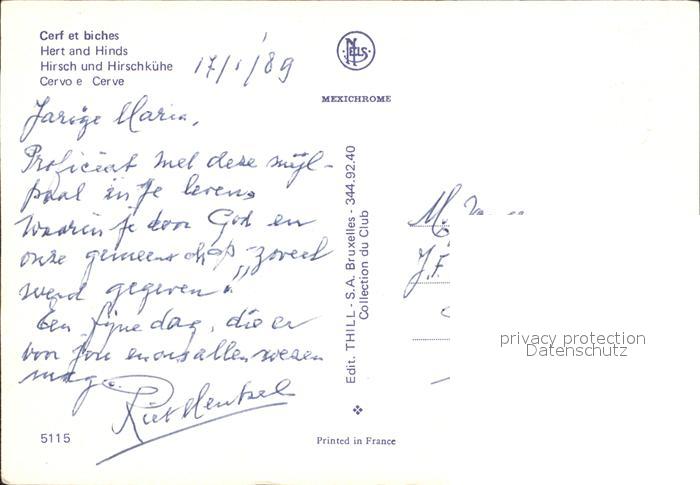 Cerf et biches
Hert and Hinds
Hirsch und Hirschkühe
Cervo e Cerve
17/1/89
NELS
MEXICHROME
Jarige Maria,
Proficiat met deze mijl-
paal in je leven,
Waarin je door God en
onze gemeenschap "zoveel
werd gegeven"
Een fijne dag, die er
voor jou en ons allen wezen
mag.
Riet Hentzel
Edit. THILL - S.A. Bruxelles - 344.92.40
Collection du Club
M.
J.F.
privacy protection
Datenschutz
5115
Printed in France